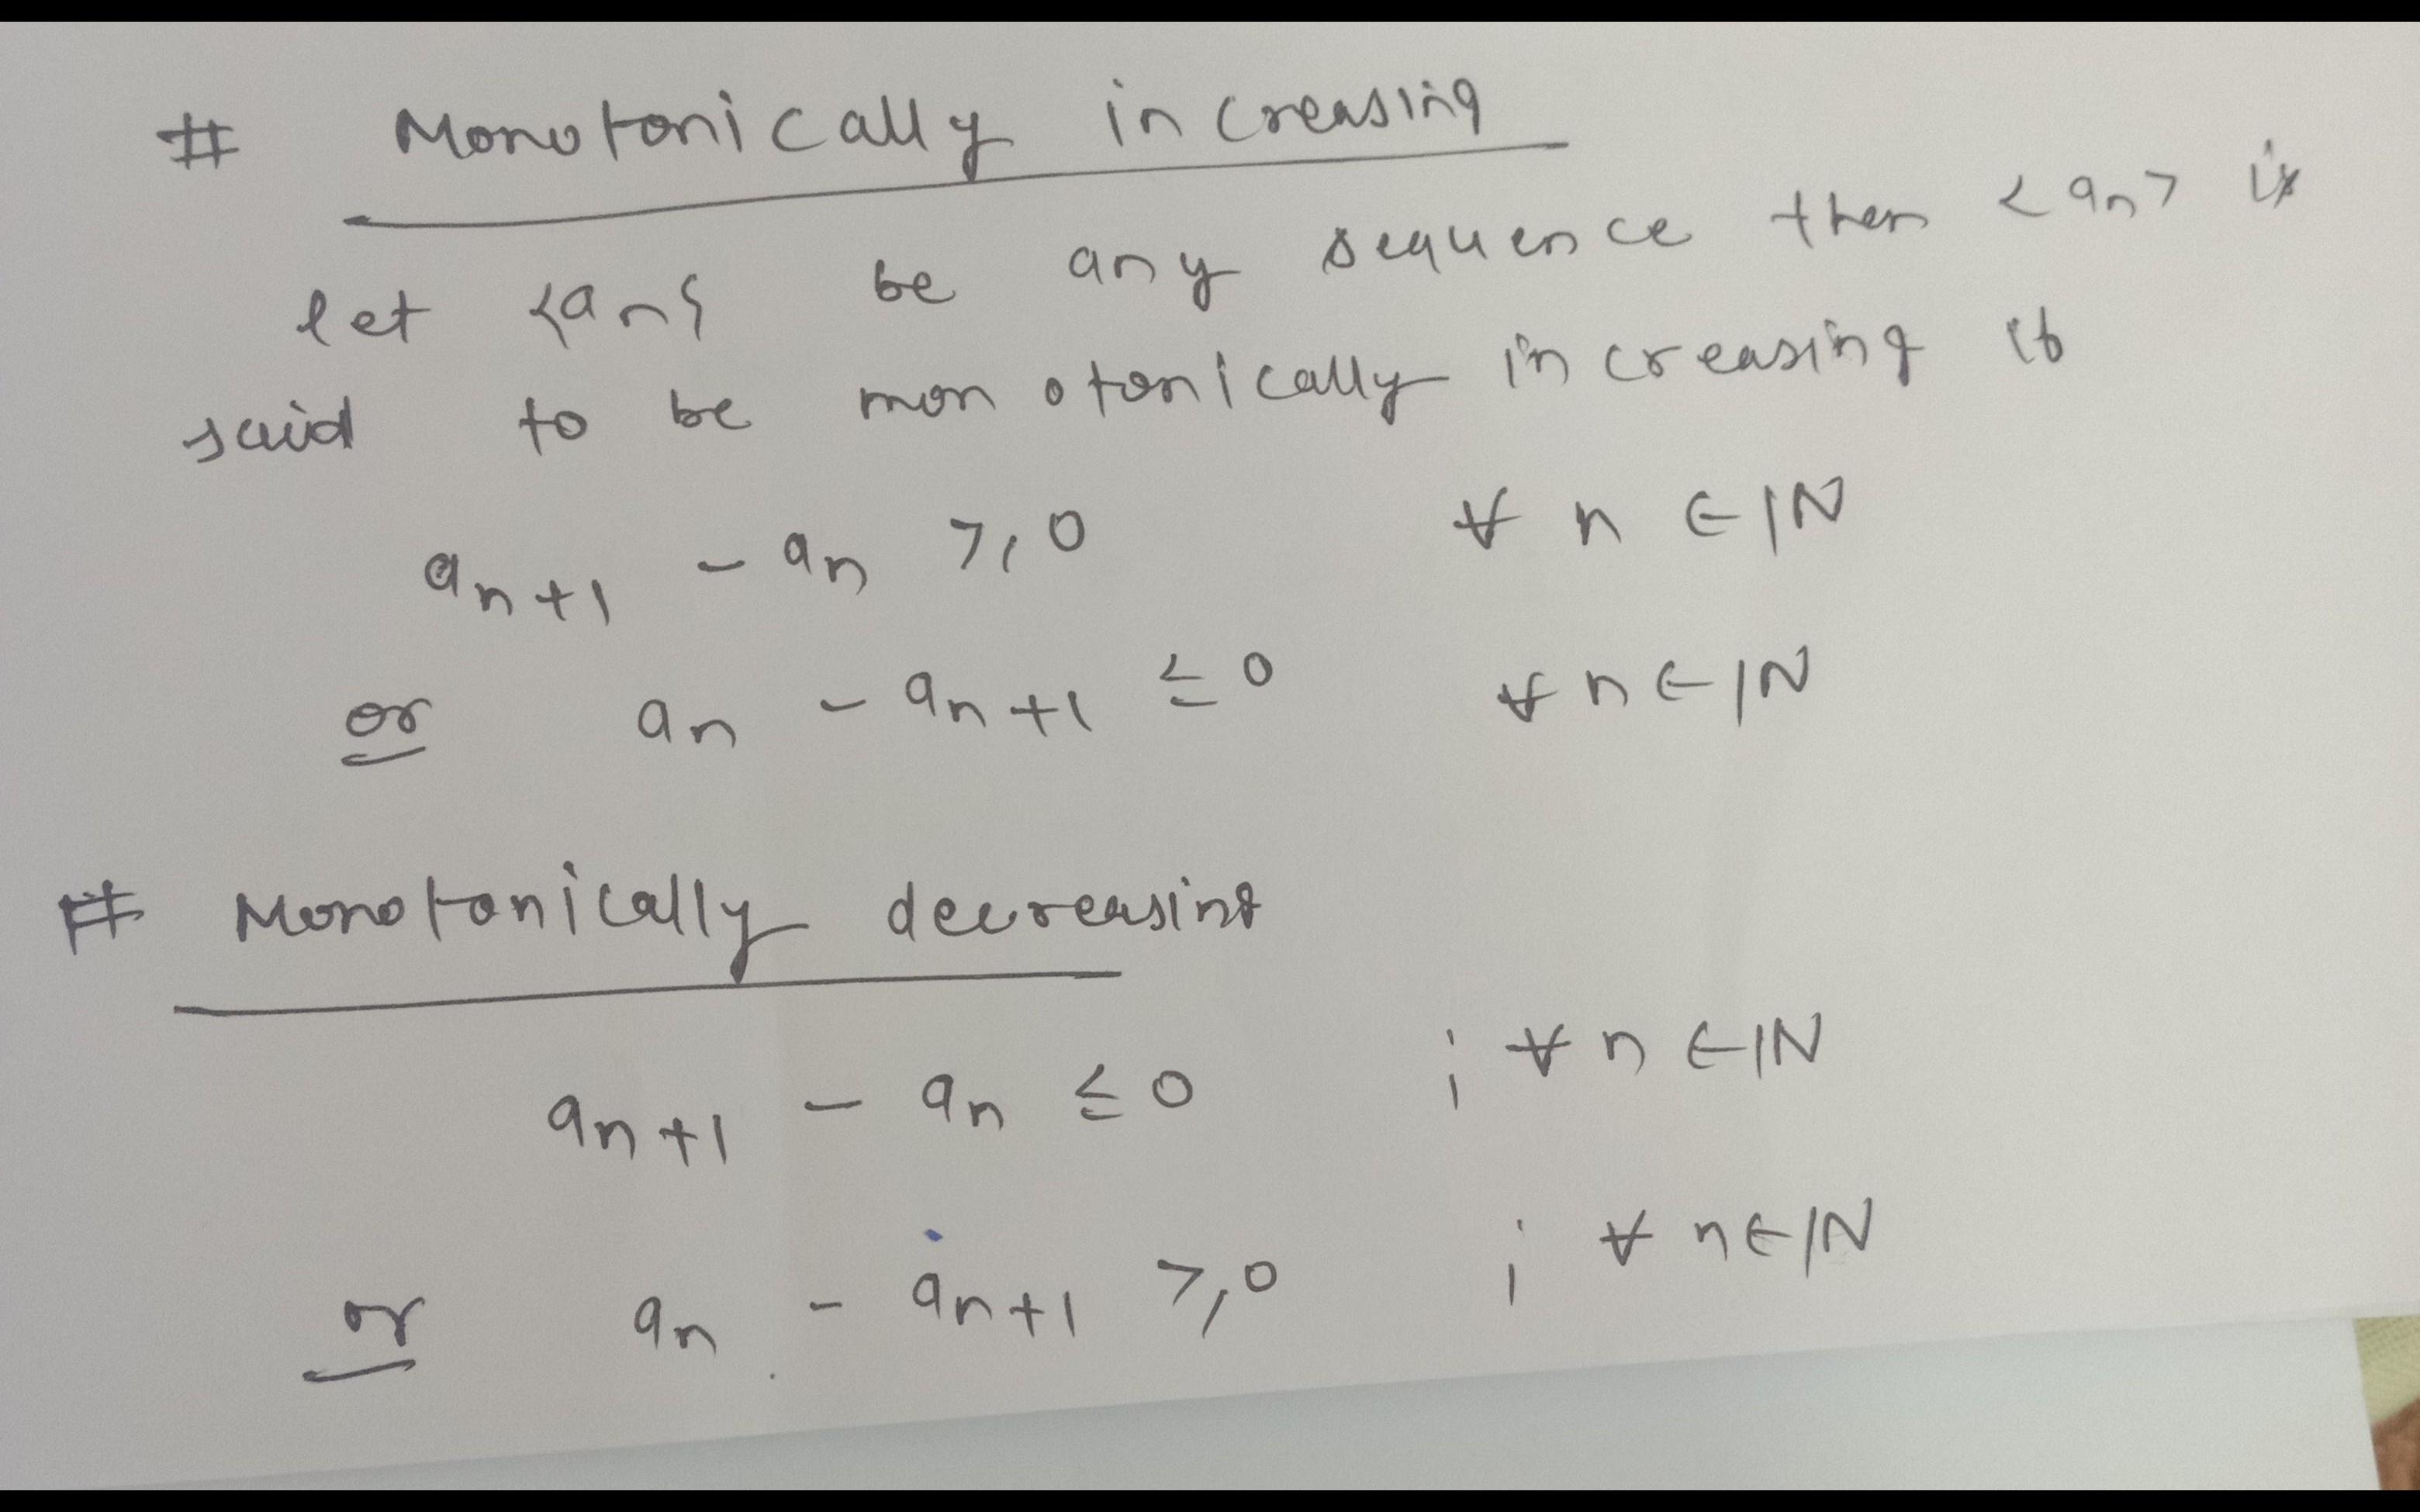 # Monotonically increasing
let {an} be any sequence then <an> is
said to be monotonically increasing if
an+1 - an ≥ 0 ∀ n ∈ IN
or an - an+1 ≤ 0 ∀ n ∈ IN
# Monotonically decreasing
an+1 - an ≤ 0 ; ∀ n ∈ IN
or an - an+1 ≥ 0 ; ∀ n ∈ IN